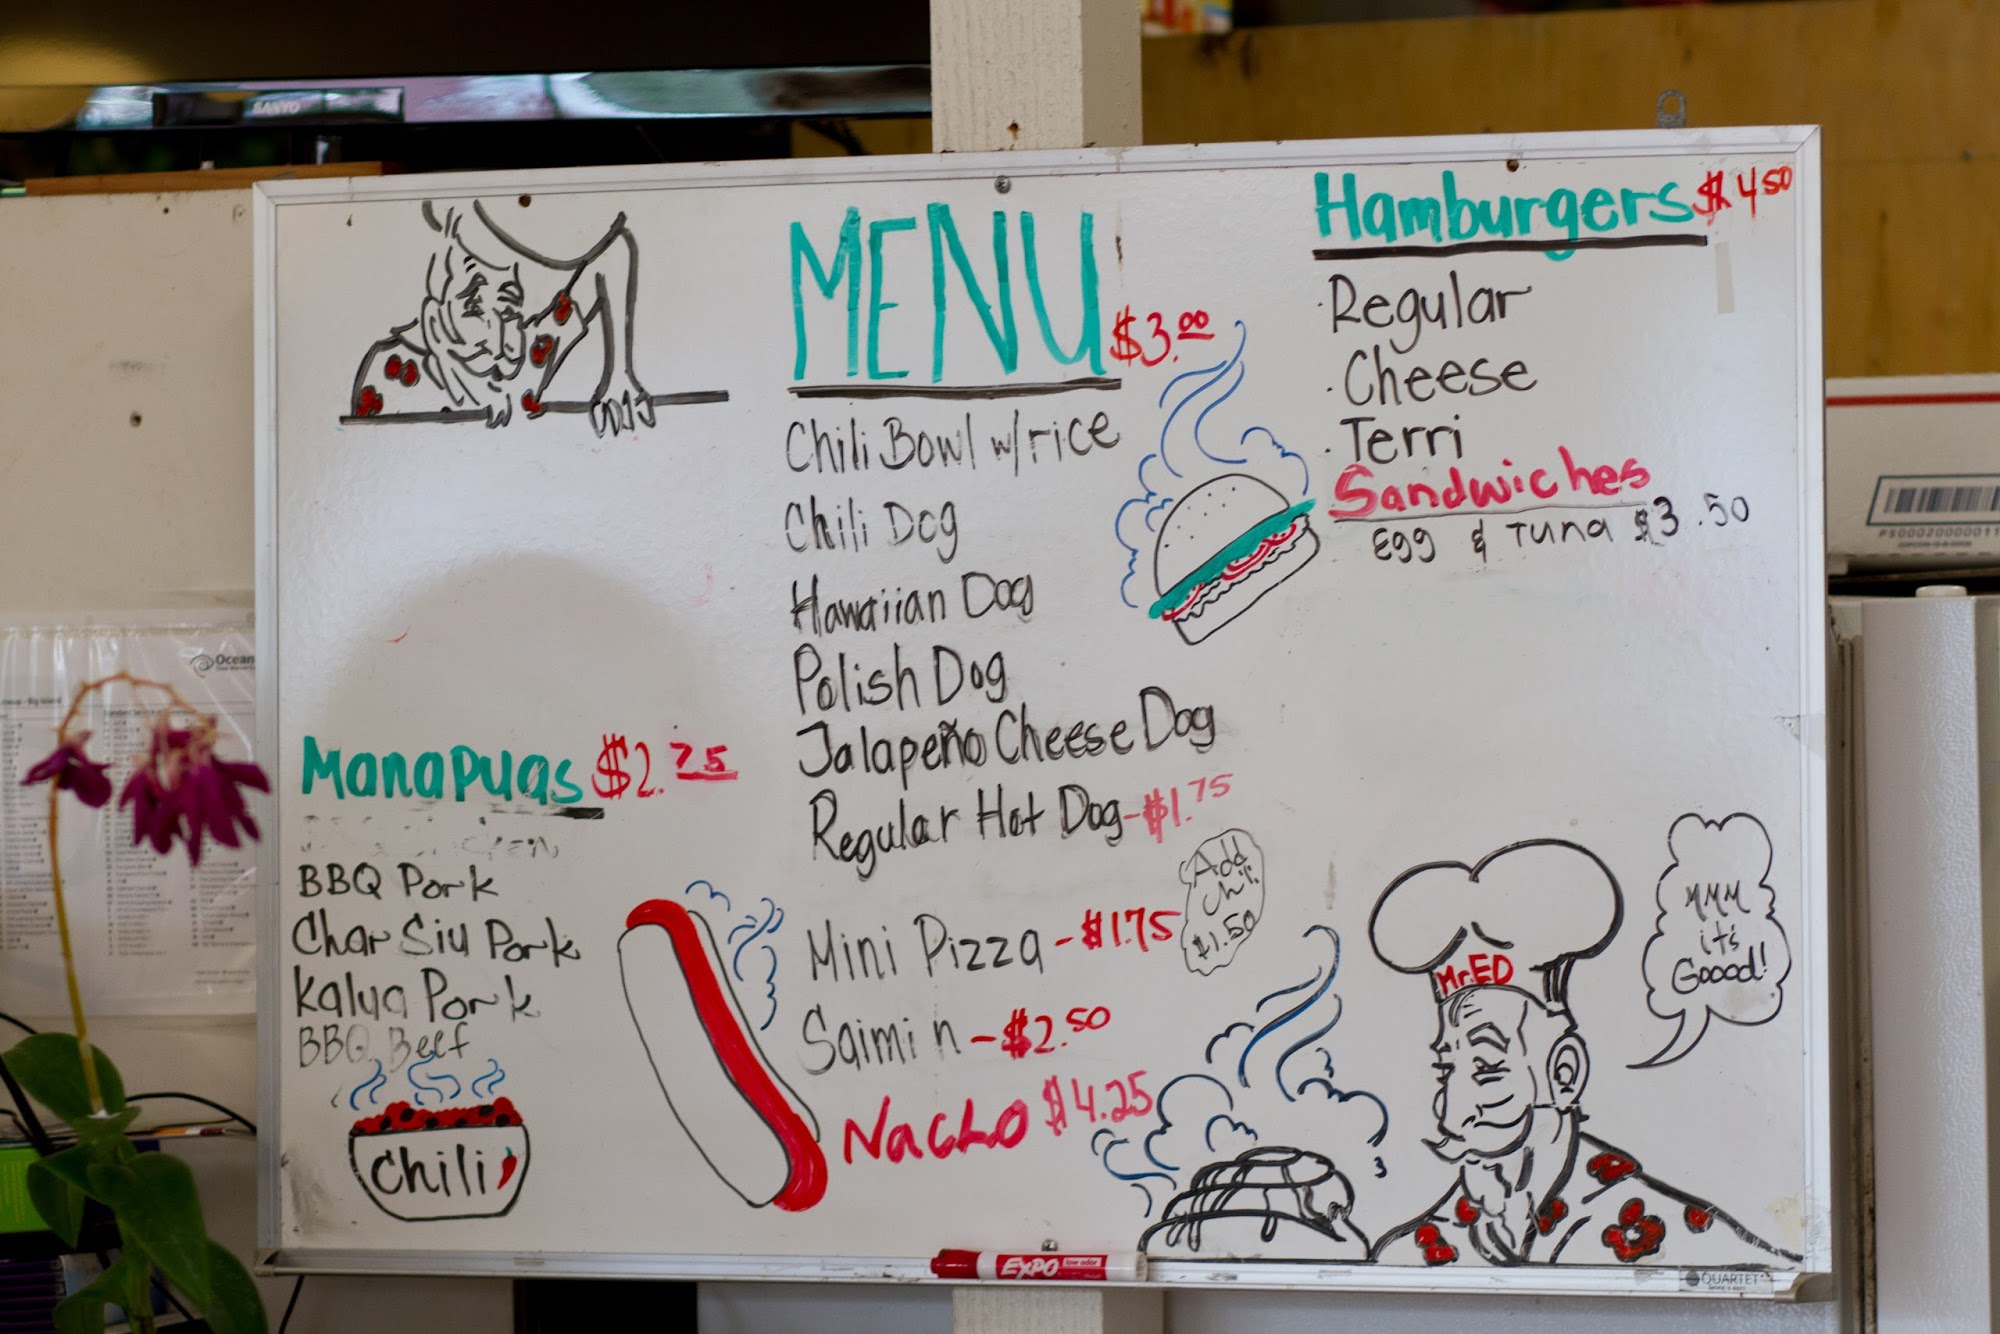 SANYO
MENU $3.00
Chili Bowl w/rice
Chili Dog
Hawaiian Dog
Polish Dog
Jalapeño Cheese Dog
Regular Hot Dog-$1.75
Add
Chili
$1.50
Mini Pizza-$1.75
Saimin-$2.50
Nacho $4.25
Hamburgers $4.50
·Regular
·Cheese
·Terri
Sandwiches
Egg & Tuna $3.50
Manapuas $2.75
BBQ Pork
Char Siu Pork
Kalua Pork
BBQ Beef
Chili
Mr.ED
MMM
it's
Goood!
EXPO low odor
QUARTET
Ocean
PS00020000011